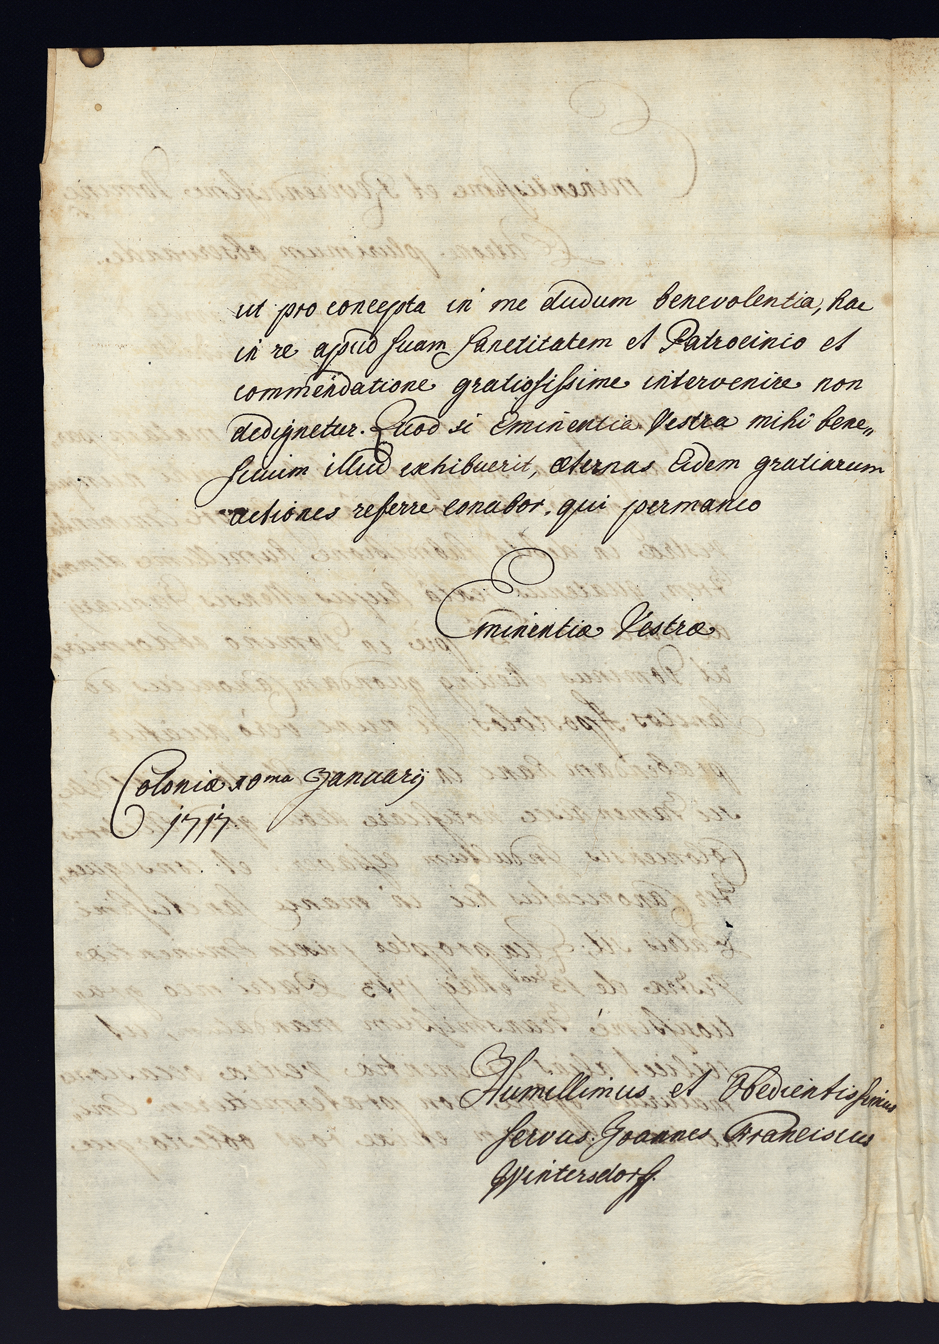 ut pro concepta in me dudum benevolentia, hac
in re apud suam Sanctitatem et Patrocinio et
commendatione gratiosissime intervenire non
dedignetur. Quod si Eminentia Vestra mihi bene„
ficium illud exhibuerit, æternas Eidem gratiarum
actiones referre conabor, qui permaneo
Eminentiæ Vestræ
Coloniæ 10ma Januarij
1717
Humillimus et Obedientissimus
servus Joannes Franciscus
Wintersdorff.